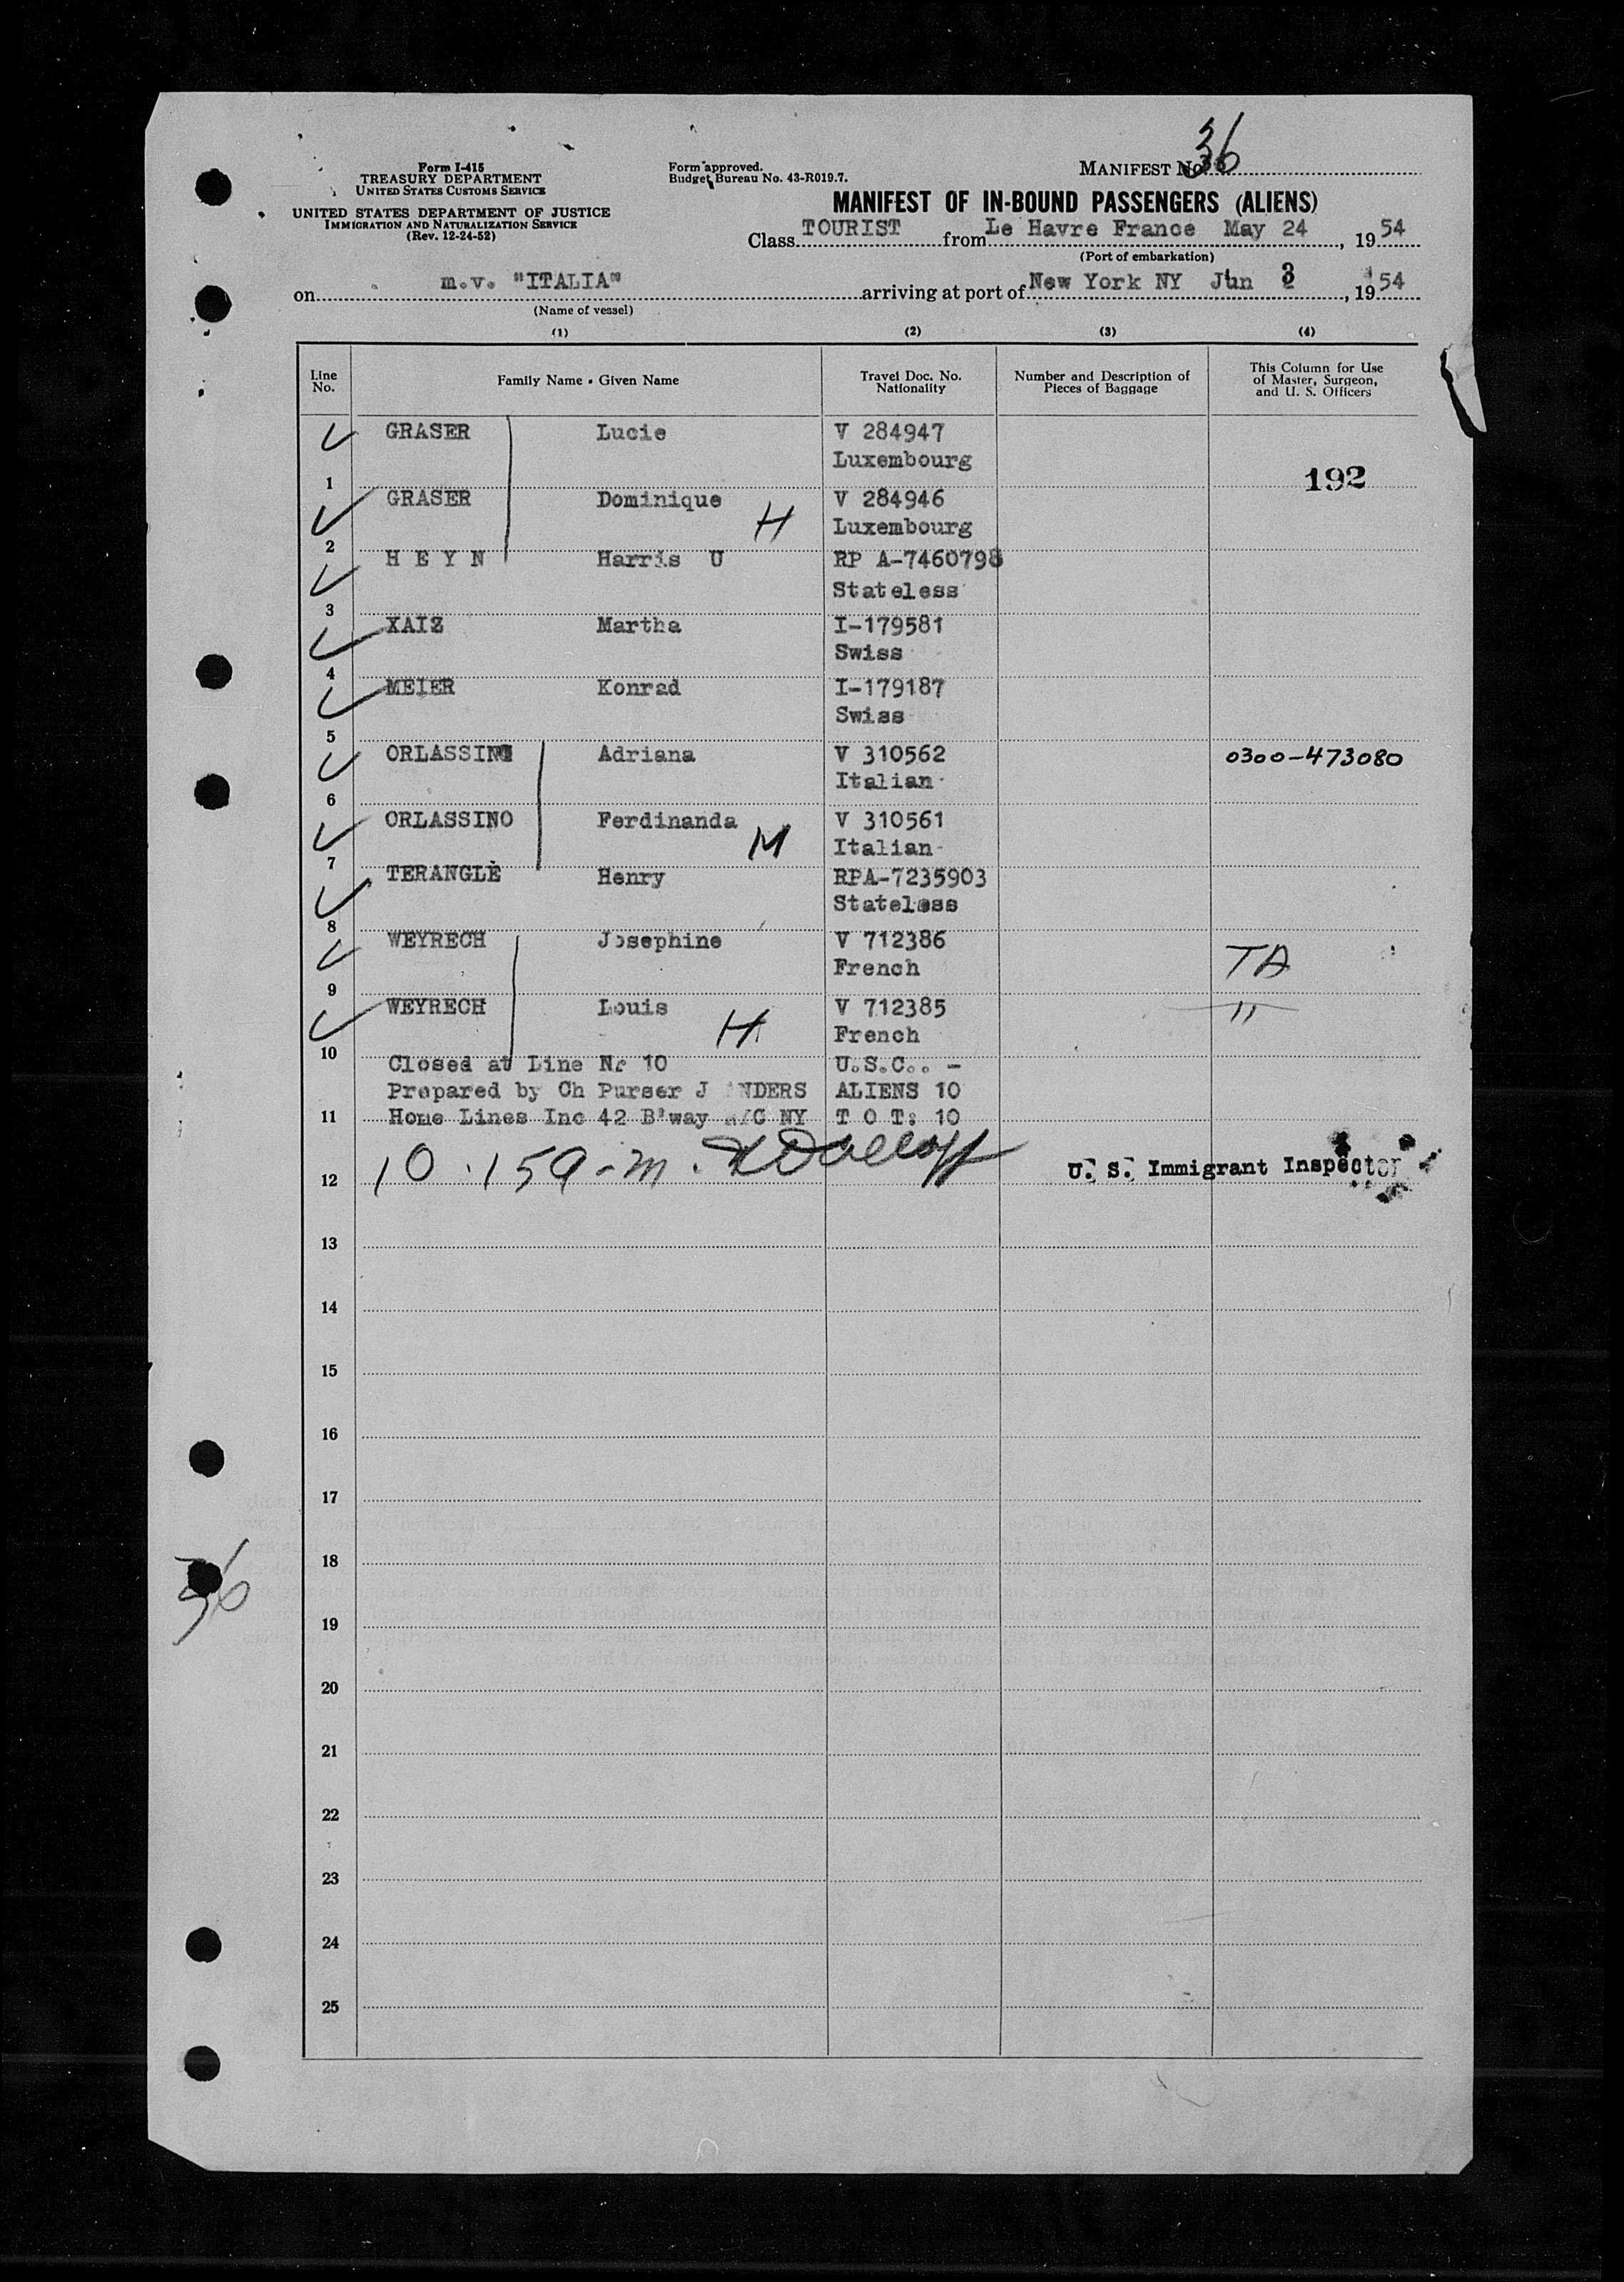 36
Form I-415
TREASURY DEPARTMENT
UNITED STATES CUSTOMS SERVICE
UNITED STATES DEPARTMENT OF JUSTICE
IMMIGRATION AND NATURALIZATION SERVICE
(Rev. 12-24-52)
Form approved.
Budget Bureau No. 43-R019.7.
MANIFEST No.
MANIFEST OF IN-BOUND PASSENGERS (ALIENS)
Class TOURIST from Le Havre France May 24, 1954
(Port of embarkation)
on m.v. "ITALIA" arriving at port of New York NY Jun 3, 1954
(Name of vessel)
(1) (2) (3) (4)
Line No. Family Name • Given Name Travel Doc. No. Nationality Number and Description of Pieces of Baggage This Column for Use of Master, Surgeon, and U. S. Officers
1 GRASER Lucie V 284947 Luxembourg 192
2 GRASER Dominique H V 284946 Luxembourg
3 H E Y N Harris U RP A-7460798 Stateless
4 XAIZ Martha I-179581 Swiss
5 MEIER Konrad I-179187 Swiss
6 ORLASSINO Adriana V 310562 Italian 0300-473080
7 ORLASSINO Ferdinanda M V 310561 Italian
8 TERANGLE Henry RPA-7235903 Stateless
9 WEYRECH Josephine V 712386 French TA
10 WEYRECH Louis H V 712385 French "
Closed at Line Nr 10 U.S.C.. -
Prepared by Ch Purser J NDERS ALIENS 10
11 Home Lines Inc 42 B'way NY T O T: 10
12 10.159-m. U. S. Immigrant Inspector
13
14
15
16
17
18
36
19
20
21
22
23
24
25